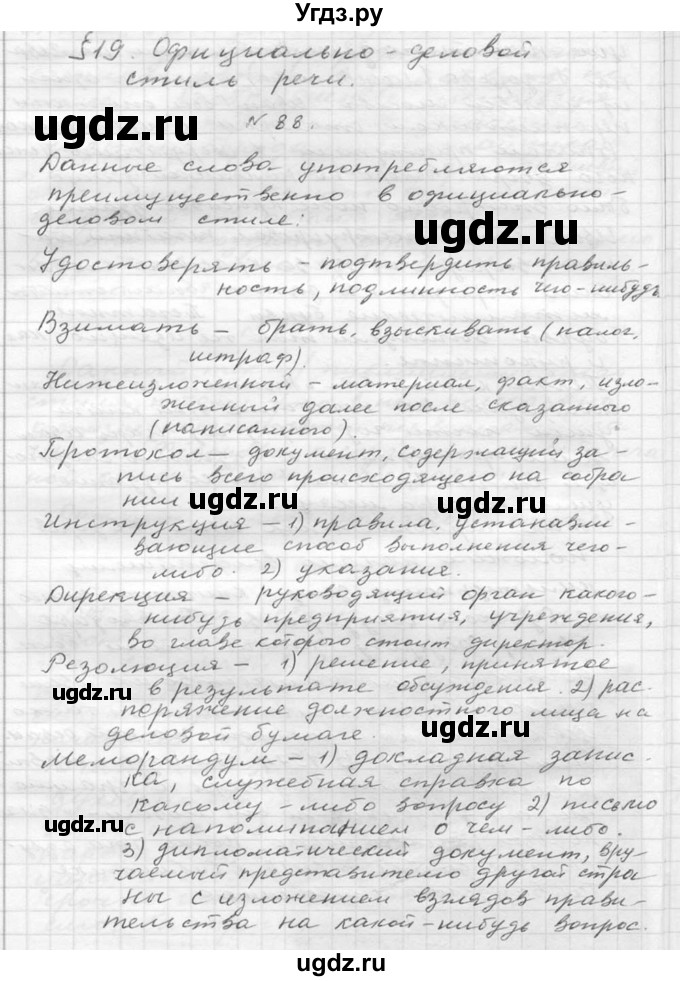 Угдз.ру
§19. Официально-деловой
стиль речи.
№ 88.
ugdz.ru
Данные слова употребляются
преимущественно в официально-
деловом стиле:
ugdz.ru
Удостоверять - подтвердить правиль-
ность, подлинность чего-нибудь
Взимать - брать, взыскивать (налог,
штраф).
Нижеизложенный - материал, факт, изло-
женный далее после сказанного
(написанного).
Протокол - документ, содержащий за-
пись всего происходящего на собра
нии
ugdz.ru ugdz.ru
Инструкция - 1) правила, устанавли-
вающие способ выполнения чего-
либо. 2) указание.
Дирекция - руководящий орган какого-
нибудь предприятия, учреждения,
во главе которого стоит директор.
Резолюция - 1) решение, принятое
ugdz.ru в результате обсуждения. 2) рас-
поряжение должностного лица на
деловой бумаге. ugdz.ru
Меморандум - 1) докладная запис-
ка, служебная справка по
какому-либо вопросу 2) письмо
ugdz.ru с напоминанием о чем-либо.
3) дипломатический документ, вру-
чаемый представителю другой стра
ны с изложением взглядов прави-
тельства на какой-нибудь вопрос.
ugdz.ru